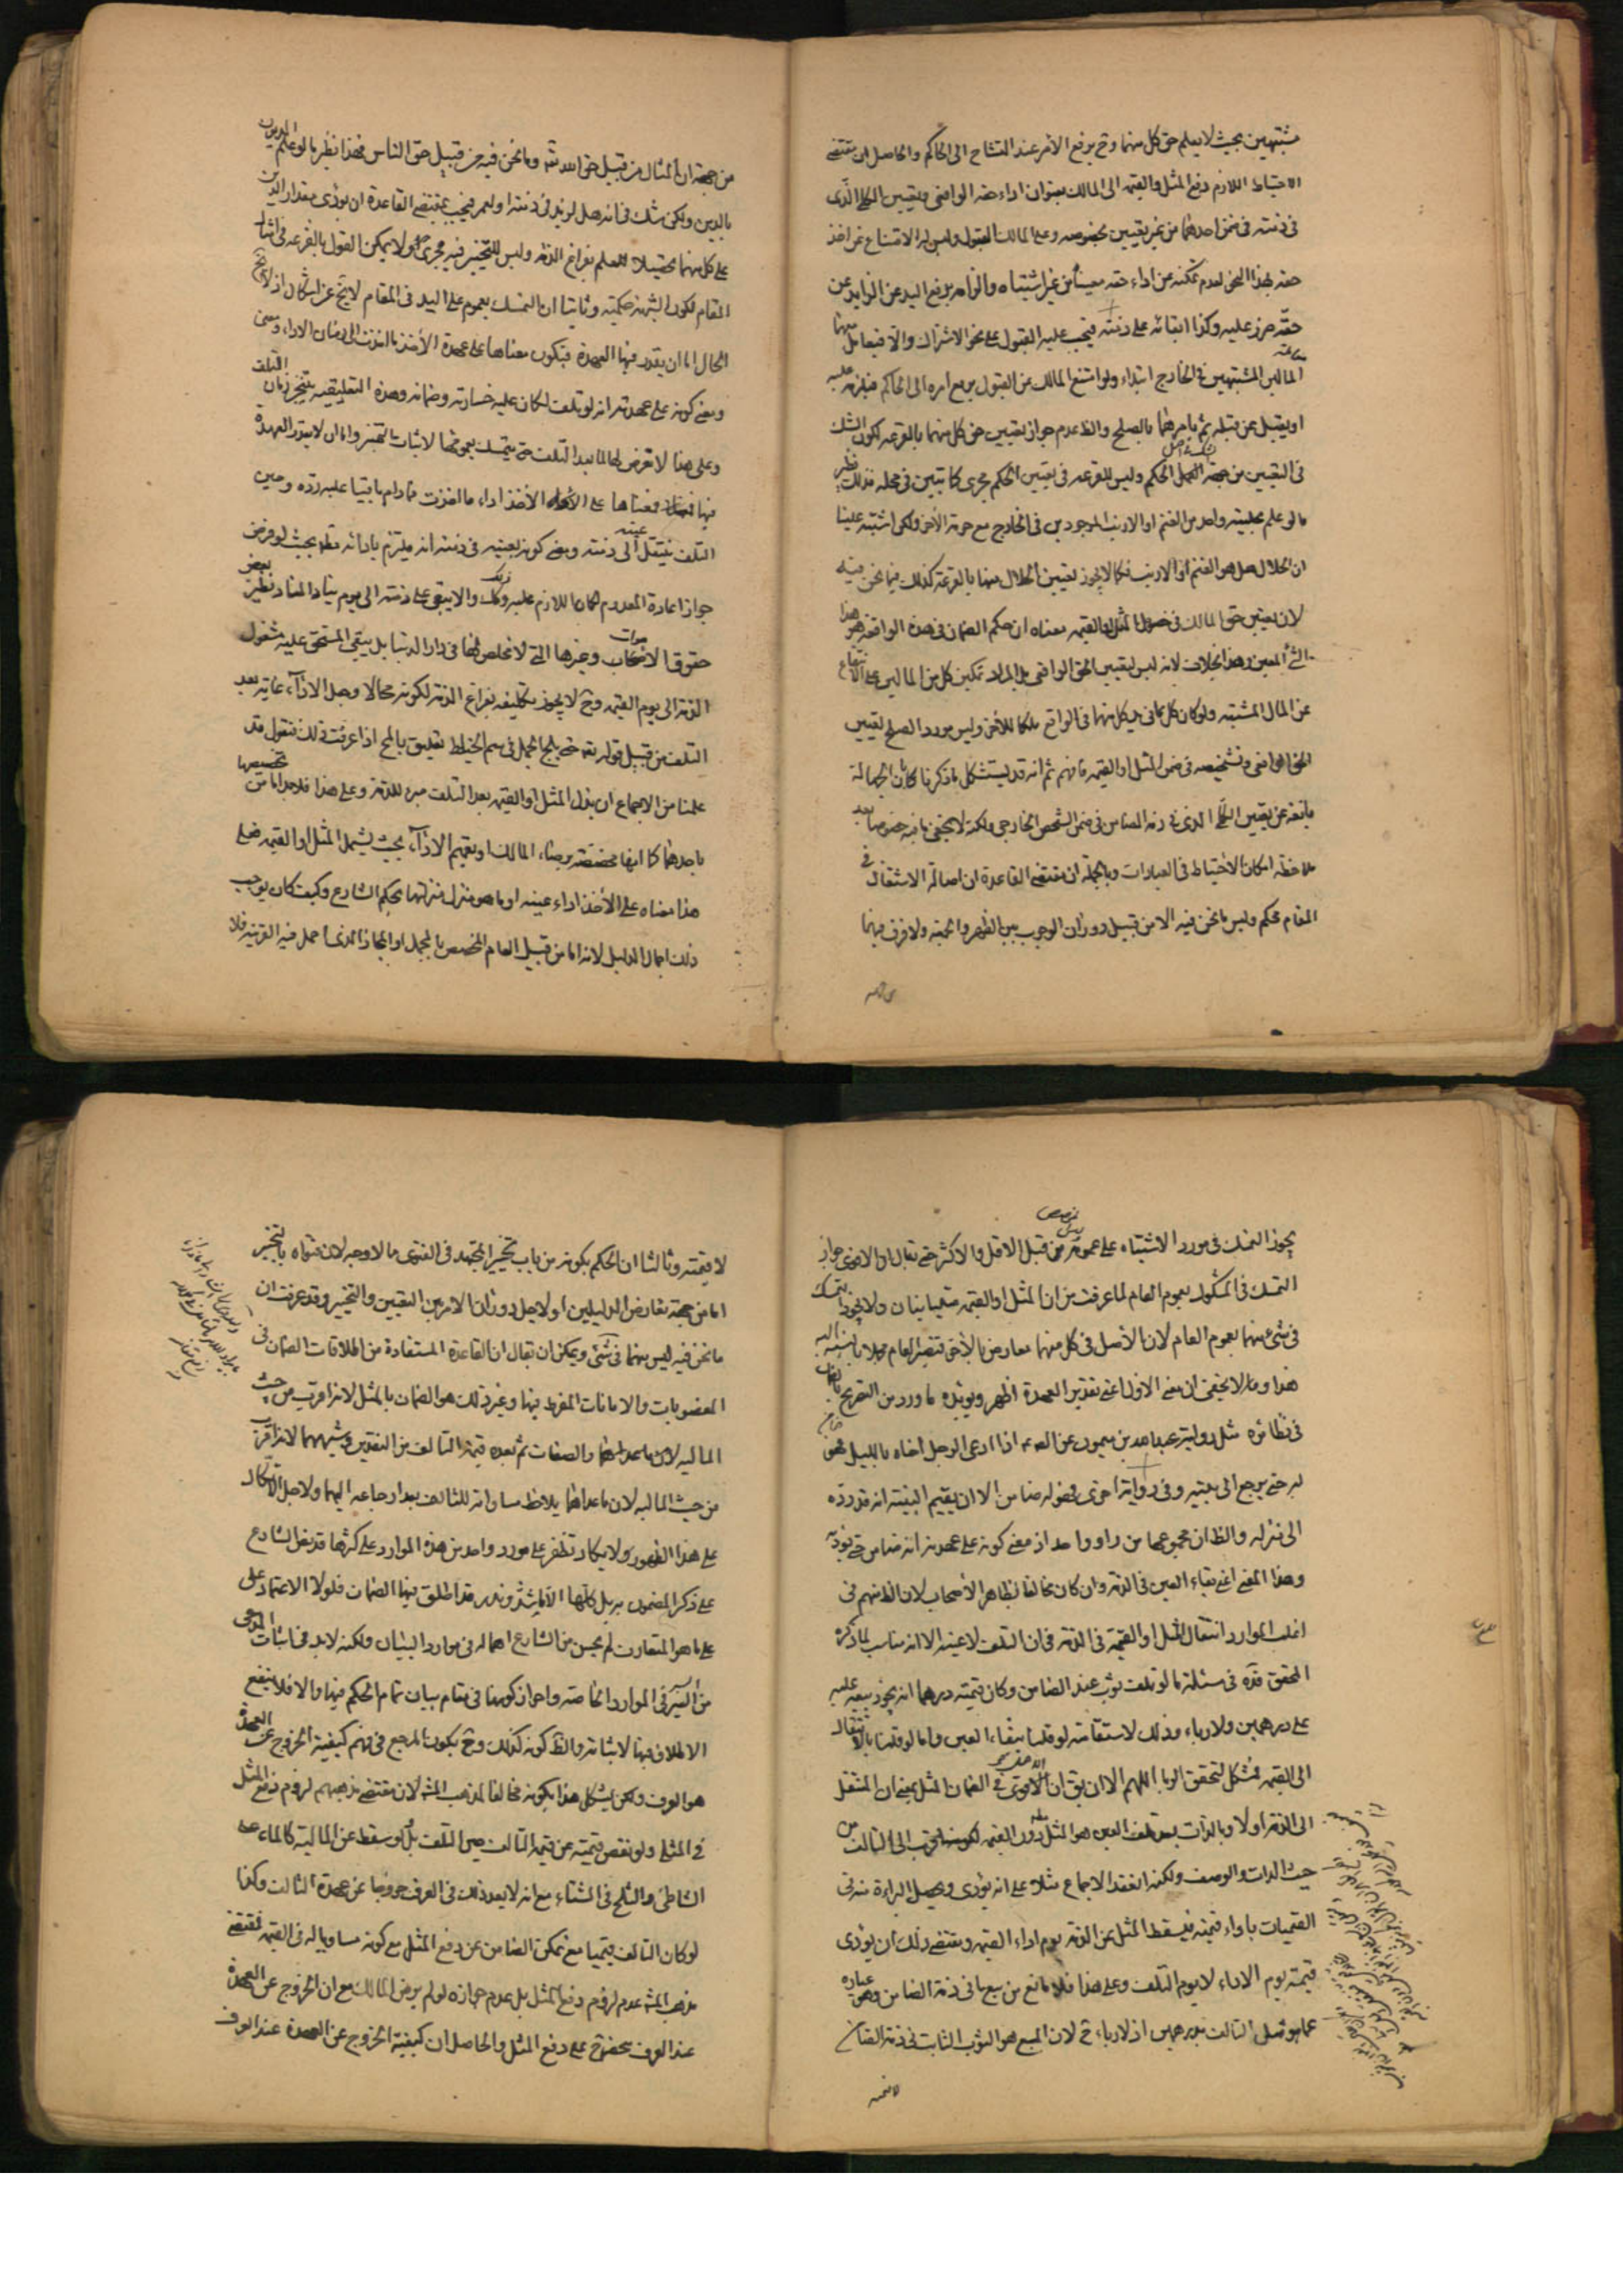 مشتبهين بحيث لا يعلم حق كل منهما وح يرفع الأمر عند التشاح الى الحاكم والحاصل ان مقتضى
الاحتياط اللازم دفع المثل والقيمة الى المالك بعنوان اداء حقه الواقعي وتعيين الكلي الذى
فى ذمته فى ضمن احدهما من غير تعيين بخصوصه وعلى المالك القبول وليس له الامتناع عن اخذ
حقه بهذا النحو لعدم تمكنه من اداء حقه معيناً من غير اشتباه والزامه برفع اليد عن الزايد عن
حقه حرز عليه وكذا ابقائه على ذمته فيجب عليه القبول على نحو الاشتراك والا فيعامل معهما
المالين المشتبهين فى الخارج ابتداء ولو امتنع المالك من القبول يرفع امره الى الحاكم فيلزمه عليه
او يقبل عن قبله ثم يامرهما بالصلح والظ عدم جواز تعيين حق كل منهما بالقرعه لكون الشك
فى التعيين من جهة الحكم وليس للقرعه فى تعيين الحكم مجرى كما تبين فى محله فذلك نظير
ما لو علم بحلية واحد من الغنم او الارنب الموجودين فى الخارج مع حرمة الأخر ولكن اشتبه علينا
ان الحلال هل هو الغنم او الارنب فكما لا يجوز تعيين الحلال منهما بالقرعة كذلك فيما نحن فيه
لان تعيين حق المالك فى خصوص المثل او القيمه معناه ان حكم الضمان فى هذه الواقعة هو هذا
الشئ المعين وهذا بخلاف لانه ليس لتعيين الحق الواقعى بل المراد تمكين كل من المالين
عن المال المشتبه ولو كان كل ما فى يد كل منهما فى الواقع ملكا للأخر وليس مورد الصلح تعيين
الحق الواقعى وتشخيصه فى ضمن المثل او القيمه فافهم ثم انه قد يستشكل ما ذكرنا كان الجهالة
مانعة عن تعيين الكلّى الذى فى ذمه الضامن فى ضمن الشخص الخارجى ولكنه لا يخفى ما فيه خصوصا بعد
ملاحظة امكان الأحتياط فى العبادات وبالجملة ان مقتضى القاعدة ان اصالة الاشتغال فى
المقام محكم وليس ما نحن فيه الا من قبيل دوران الوجوب بين الظهر والجمعه ولا فرق بينهما
من جهة ان المثال من قبيل حق الله تعه وما نحن فيه من قبيل حق الناس فهذا نظير ما لو علم المديون
بالدين ولكن شك فى انه هل لزيد فى ذمته او لعمر فيجب بمقتضى القاعدة ان يؤدى مقدار الدين
على كل منهما تحصيلا للعلم بفراغ الذمه وليس للتخيير فيه مجرى ولا يمكن القول بالقرعه فى
المقام لكون الشبهة حكمية وثانيا ان التمسك بعموم على اليد فى المقام لا يخ عن اشكال اذ لا يخ
الحال اما ان يقدر فيها العهدة فيكون معناها على عهدة الأخذ ما اخذت الى زمان الاداء ومعنى
ومعنى كونه على عهدته انه لو تلف لكان عليه خسارته وضمانه وهذه التعليقيه يتنجز زمان التلف
وعلى هذا لا تعرض لها لما بعد التلف حتى يتمسك بعمومها لاثبات التخيير واما ان لا يقدر العهدة
فيها فمعناها على الأخذ اداء ما اخذت فما دام باقيا عليه رده وحين
التلف ينتقل الى ذمته عينه ومعنى كونه بعينه فى ذمته انه ملتزم بادائه فعلا بحيث لو فرض
جواز اعادة المعدوم لكان اللازم عليه ذلك والا يبقى على ذمته الى يوم يناد المناد نظير بعض
حقوق الاموات وغيرها التى لا تخلص لها فى دار الدنيا بل يبقى المستحق عليه مشغول
الذمة الى يوم القيمه وح لا يجوز تكليفه بفراغ الذمة لكونه محالا وجعل الاداء غاية بعد
التلف من قبيل قوله تعه حتى يلج الجمل فى سم الخياط تعليق بالمح اذا عرفت ذلك فنقول قد
علمنا من الاجماع ان بذل المثل او القيمه بعد التلف مبرء للذمة وعلى هذا فلابد اما من تخصيصها
باحدهما كما انها مخصصة برضاء المالك او تعميم الاداء بحيث يشمل المثل او القيمه فعلى
هذا معناه على الأخذ اداء عينه او ما هو منزل منزلتها بحكم الشارع وكيف كان يوجب
ذلك اجمال الدليل لانه اما من قبيل العام المخصص بالمجمل او المجاز الذى اجمل فيه القرينه فلا
يجوز التمسك فى مورد الاشتباه على عمومه من قبيل الاقل والاكثر حتى يقال ان الاقوى جواز
التمسك فى المشكوك بعموم العام لما عرفت من ان المثل او القيمه متباينان ولا يجوز التمسك
فى شئ منهما بعموم العام لان الأصل فى كل منهما معارض بالأخر فيصير العام مجملا بالنسبة اليه
هذا ولا يخفى ان معنى الاول اعنى تقدير العهدة اظهر ويؤيده ما ورد من التصريح بالضمان
فى نظائره مثل رواية عبدالله بن ميمون عن الصه اذا ادعى الرجل اخاه بالليل فهو ضامن
له حتى يرجع الى بيته وفى رواية اخرى فهو له ضامن الا ان يقيم البينة انه قد رده
الى منزله والظ ان مجموعهما من راو واحد اذ معنى كونه على عهدته انه ضامن حتى يؤديه
وهذا المعنى اعنى بقاء العين فى الذمة وان كان مخالفا لظاهر الأصحاب لان الظ منهم فى
اغلب الموارد انتقال المثل او القيمة فى الذمة فى ان التلف لا عينه الا انه مناسب لما ذكره
المحقق قده فى مسئلة ما لو تلف ثوب عند الضامن وكان قيمته درهما انه يجوز بيعه عليه
على درهمين ولا رباء وذلك لاستقامة لو قلنا ببقاء العين واما لو قلنا بالانتقال
الى القيمه فمشكل لتحقق الربا اللهم الا ان يق ان الاقوى فى الضمان المثل بمعنى ان المنتقل
الى الذمة اولا وبالذات بعد تلف العين هو المثل دون القيمه لكونه اقرب الى التالف من
حيث الذات والوصف ولكنه انعقد الاجماع مثلا على انه يؤدى ويحصل البراءة منه فى
القيميات باداء قيمته فيسقط المثل عن الذمة يوم اداء القيمه ومقتضى ذلك ان يؤدى
قيمته يوم الاداء لا يوم التلف وعلى هذا فلا مانع من بيع ما فى ذمة الضامن وهو عبارة
عما هو مثل التالف بدرهمين اذ لا رباء ح لان المبيع هو الثوب الثابت فى ذمة الضامن
لا قيمته
لا قيمته وثالثا ان الحكم بكونه من باب تخيير المجتهد فى الفتوى مما لا وجه له لان فتواه بالتخيير
اما من جهة تعارض الدليلين او لاجل دوران الامر بين التعيين والتخيير وقد عرفت ان
ما نحن فيه ليس منهما فى شئ ويمكن ان يقال ان القاعدة المستفادة من اطلاقات الضمان فى
المغصوبات والامانات المفرط فيها وغير ذلك هو الضمان بالمثل لانه اقرب من حيث
الماليه والصفات ثم بعده قيمة التالف من النقدين وشبههما لانه اقرب
من حيث الماليه لان ما عداهما يلاحظ مساواته للتالف بعد ارجاعه اليهما ولاجل الاتكال
على هذا الظهور ولا يكاد تظفر على مورد واحد من هذه الموارد على كثرتها قد نص الشارع
على ذكر المضمون به بل كلها الا ما شذّ وندر قد اطلق فيها الضمان فلولا الاعتماد على
على ما هو المتعارف لم يحسن من الشارع اهماله فى موارد البيان ولكنه لا بد فى اثبات المدعى
من السير فى الموارد الخاصه واحراز كونها فى مقام بيان تمام الحكم فيها والا فلا ينفع
الاطلاق فيها لاثباته والظ كونه كذلك وح يكون المرجع فى فهم كيفية الخروج عن العهدة
هو العرف ولكن يشكل هذا بكونه مخالفا لمذهب المشه لان مقتضى مذهبهم لزوم دفع المثل
فى المثلى ولو نقص قيمته عن قيمة التالف حين التلف بل لو سقط عن المالية كالماء على
الشاطئ والثلج فى الشتاء مع انه لا يعد ذلك فى العرف خروجا عن عهدة التالف وكذا
لو كان التالف قيميا مع تمكن الضامن عن دفع المثل مع كونه مساويا له فى القيمه فمقتضى
مذهب المشه عدم لزوم دفع المثل بل عدم جوازه لو لم يرض المالك مع ان الخروج عن العهدة
عند العرف يتحقق ح على دفع المثل والحاصل ان كيفية الخروج عن العهدة عند العرف